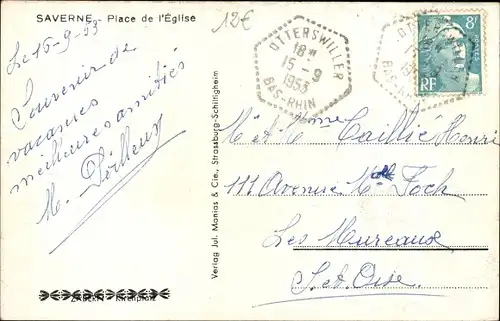 SAVERNE - Place de l'Église
12€
Le 15-9-53
Souvenir de
vacances
meilleures amitiés
M.
OTTERSWILLER
18H
15 - 9
1953
BAS-RHIN
8F
POSTES
RF
M et Mme Caillié Henri
111 Avenue Mal Foch
Les Mureaux
S. et Oise
Verlag Jul. Manias & Cie., Strassburg-Schiltigheim